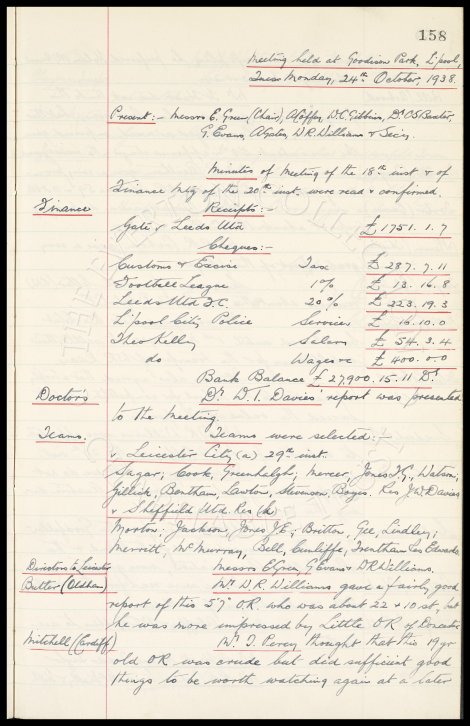 158
Meeting held at Goodison Park, L'pool,
Mon Monday, 24th October, 1938.
Present:- Messrs E. Green (Chair), A. Coffey, W.C. Gibbins, Dr. C.S. Baxter,
G. Evans, A. Gates, W.R. Williams & Secy.
Minutes of Meeting of the 18th inst & of
Finance Mtg of the 20th inst. were read & confirmed.
Finance
Receipts:-
Gate v Leeds Utd £1751.1.7
Cheques:-
Customs & Excise Tax £287.7.11
Football League 1% £13.16.8
Leeds Utd F.C. 20% £223.19.3
L'pool City Police Services £16.10.0
Theo Kelly Salary £54.3.4
do Wages &c £400.0.0
Bank Balance £27,900.15.11 Dr
Doctor's
Dr. D.T. Davies' report was presented
to the Meeting.
Teams.
Teams were selected:-
v Leicester City (a) 29th inst.
Sagar; Cook, Greenhalgh; Mercer, Jones T.G., Watson;
Gillick, Bentham, Lawton, Stevenson, Boyes. Res J.W. Davies
v Sheffield Utd. Res (h)
Morton; Jackson, Jones J.E.; Britton, Gee, Lindley;
Merritt, McMurray, Bell, Cunliffe, Trentham Res Edwards
Directors to Leicester
Messrs E. Green, G. Evans & W.R. Williams.
Butler (Oldham)
Mr. W.R. Williams gave a fairly good
report of this 5'7" O.R. who was about 22 & 10 st, but
he was more impressed by Little O.R. of Doncaster
Mitchell (Cardiff)
Mr. T. Percy thought that this 19 yr
old O.R. was crude but did sufficient good
things to be worth watching again at a later